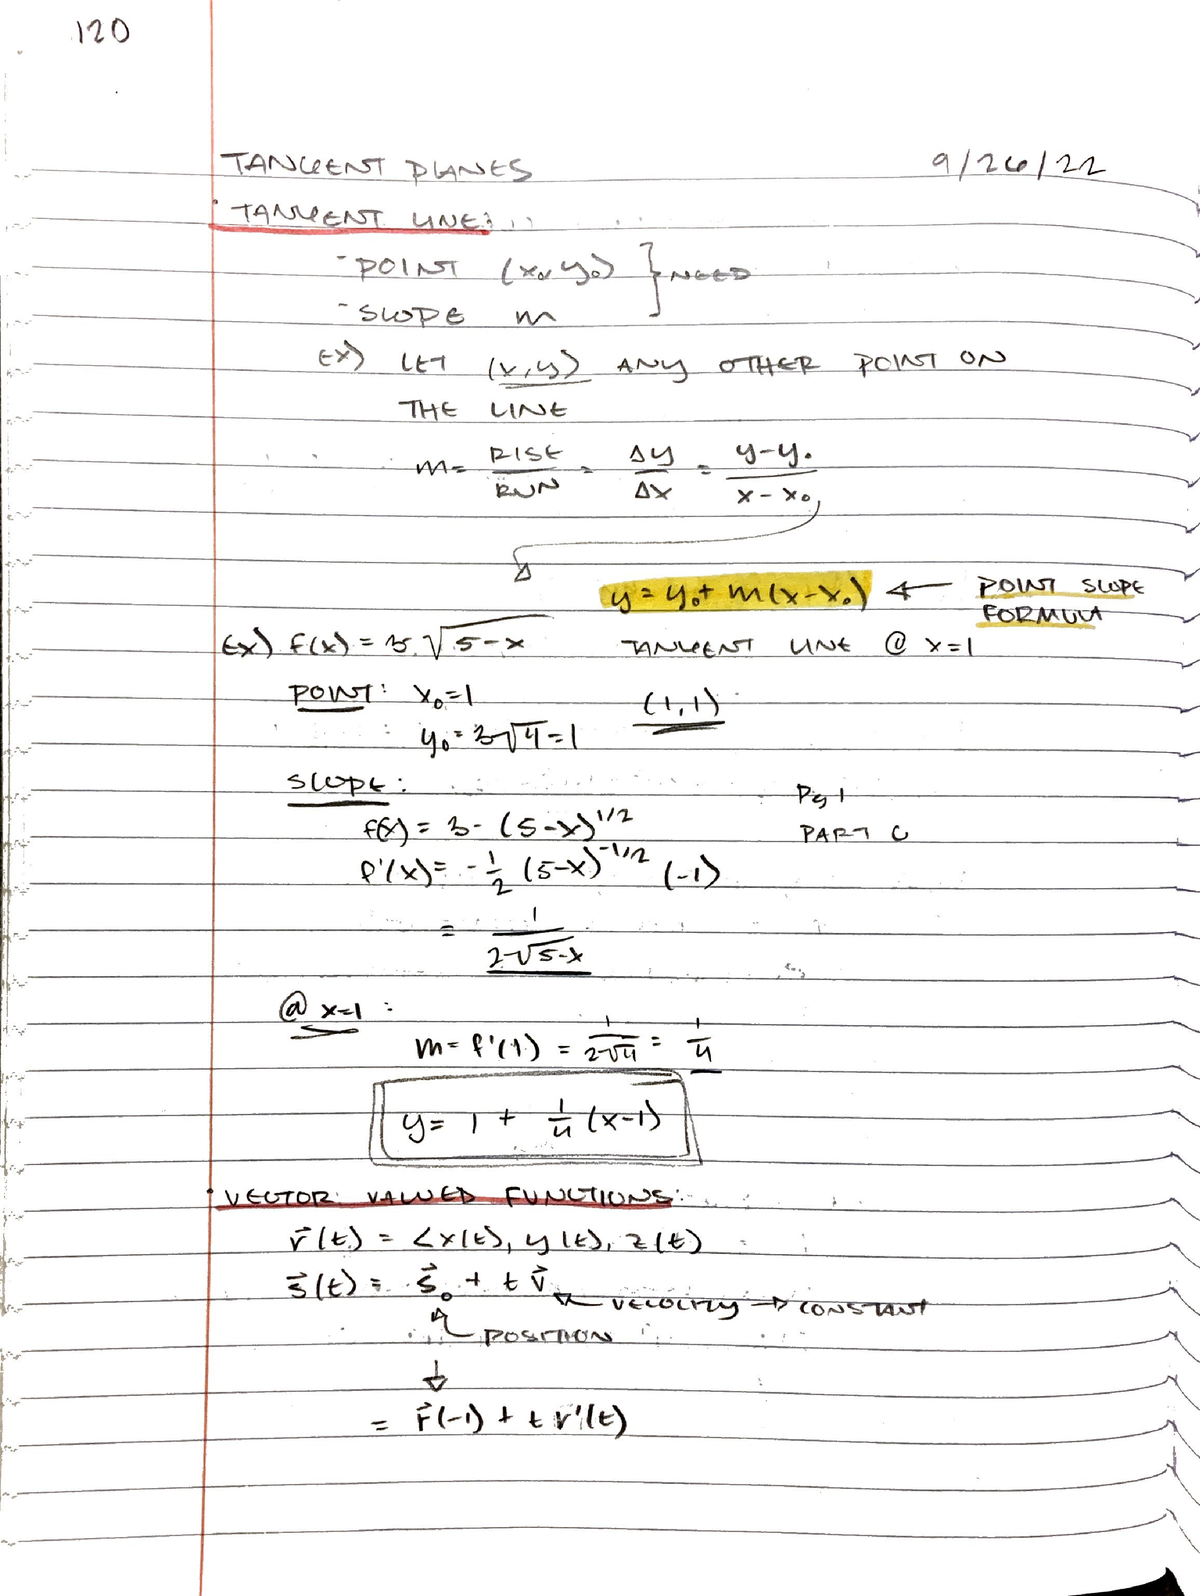 120
TANGENT PLANES 9/26/22
· TANGENT LINE:
- POINT (x₀, y₀) } NEED
- SLOPE m
EX) LET (x,y) ANY OTHER POINT ON
THE LINE
m = RISE/RUN = Δy/Δx = y-y₀/x-x₀
y = y₀ + m(x-x₀) ← POINT SLOPE
FORMULA
EX) f(x) = 3-√5-x TANGENT LINE @ x=1
POINT: x₀=1 (1,1)
y₀ = 3-√4 = 1
SLOPE:
Pg 1
f(x) = 3 - (5-x)^1/2 PART C
f'(x) = -1/2 (5-x)^-1/2 (-1)
= 1/2√5-x
@ x=1 :
m = f'(1) = 1/2√4 = 1/4
y = 1 + 1/4 (x-1)
· VECTOR VALUED FUNCTIONS:
r⃗(t) = <x(t), y(t), z(t)
s⃗(t) = s⃗₀ + t v⃗ ← VELOCITY → CONSTANT
POSITION
↓
= r⃗(-1) + t r'(t)